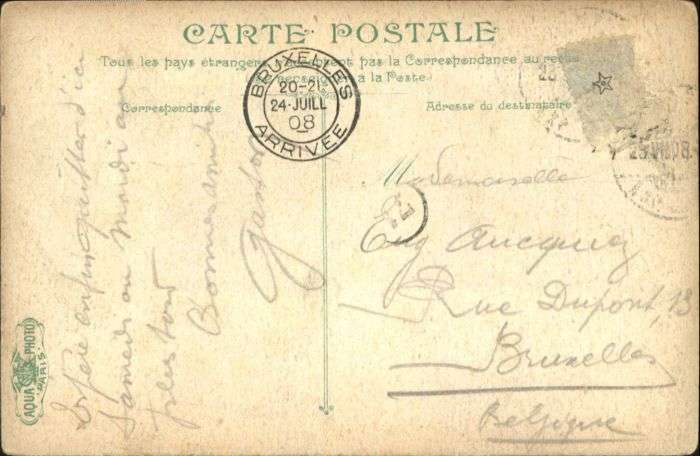 CARTE POSTALE
Tous les pays étrangers pas la Correspondance au recto
à la Poste
Correspondance
Adresse du destinataire
BRUXELLES
20-21
24·JUILL
08
ARRIVÉE
J'espère enfin quitter d'ici
Samedi ou mardi au
plus tard
Bonne amitié
Gaston
Mademoiselle
Eug
Rue Dupont, 13
Bruxelles
Belgique
AQUA PHOTO
PARIS